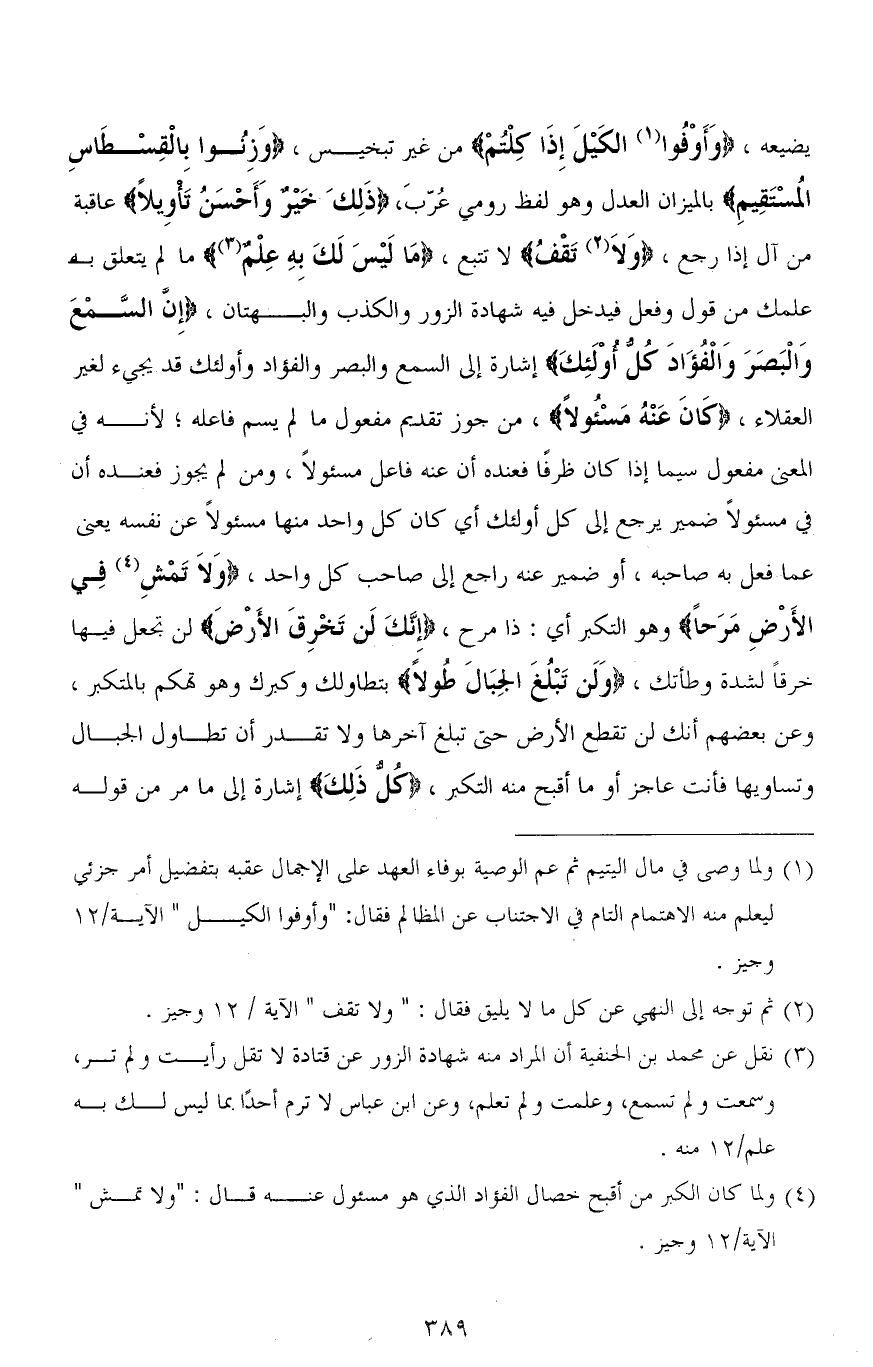 يضيعه ، ﴿وَأَوْفُوا(١) الكَيْلَ إِذَا كِلْتُمْ﴾ من غير تبخيـــس ، ﴿وَزِنُــوا بِالْقِسْــطَاسِ
الْمُسْتَقِيمِ﴾ بالميزان العدل وهو لفظ رومي عُرّبَ، ﴿ذَلِكَ خَيْرٌ وَأَحْسَنُ تَأْوِيلاً﴾ عاقبة
من آل إذا رجع ، ﴿وَلاَ(٢) تَقْفُ﴾ لا تتبع ، ﴿مَا لَيْسَ لَكَ بِهِ عِلْمٌ(٣)﴾ ما لم يتعلق بـه
علمك من قول وفعل فيدخل فيه شهادة الزور والكذب والبـــهتان ، ﴿إِنَّ السَّــمْعَ
وَالْبَصَرَ وَالْفُؤَادَ كُلُّ أُوْلَئِكَ﴾ إشارة إلى السمع والبصر والفؤاد وأولئك قد يجيء لغير
العقلاء ، ﴿كَانَ عَنْهُ مَسْئُولاً﴾ ، من جوز تقديم مفعول ما لم يسم فاعله ؛ لأنـــه في
المعنى مفعول سيما إذا كان ظرفًا فعنده أن عنه فاعل مسئولاً ، ومن لم يجوز فعنـــده أن
في مسئولاً ضمير يرجع إلى كل أولئك أي كان كل واحد منها مسئولاً عن نفسه يعنى
عما فعل به صاحبه ، أو ضمير عنه راجع إلى صاحب كل واحد ، ﴿وَلاَ تَمْشِ(٤) فِــي
الأَرْضِ مَرَحاً﴾ وهو التكبر أي : ذا مرح ، ﴿إِنَّكَ لَن تَخْرِقَ الأَرْضَ﴾ لن تجعل فيـها
خرقاً لشدة وطأتك ، ﴿وَلَن تَبْلُغَ الجِبَالَ طُولاً﴾ بتطاولك وكبرك وهو تهكم بالمتكبر ،
وعن بعضهم أنك لن تقطع الأرض حتى تبلغ آخرها ولا تقـــدر أن تطـــاول الجبـــال
وتساويها فأنت عاجز أو ما أقبح منه التكبر ، ﴿كُلُّ ذَلِكَ﴾ إشارة إلى ما مر من قولـــه
(١) ولما وصى في مال اليتيم ثم عم الوصية بوفاء العهد على الإجمال عقبه بتفضيل أمر جزئي
ليعلم منه الاهتمام التام في الاجتناب عن المظالم فقال: "وأوفوا الكيـــل " الآيـــة/١٢
وجيز .
(٢) ثم توجه إلى النهي عن كل ما لا يليق فقال : " ولا تقف " الآية / ١٢ وجيز .
(٣) نقل عن محمد بن الحنفية أن المراد منه شهادة الزور عن قتادة لا تقل رأيـــت و لم تـــر،
وسمعت و لم تسمع، وعلمت و لم تعلم، وعن ابن عباس لا ترم أحدًا بما ليس لـــك بـــه
علم/١٢ منه .
(٤) ولما كان الكبر من أقبح خصال الفؤاد الذي هو مسئول عنـــه قـــال : "ولا تمـــش "
الآية/١٢ وجيز .
٣٨٩